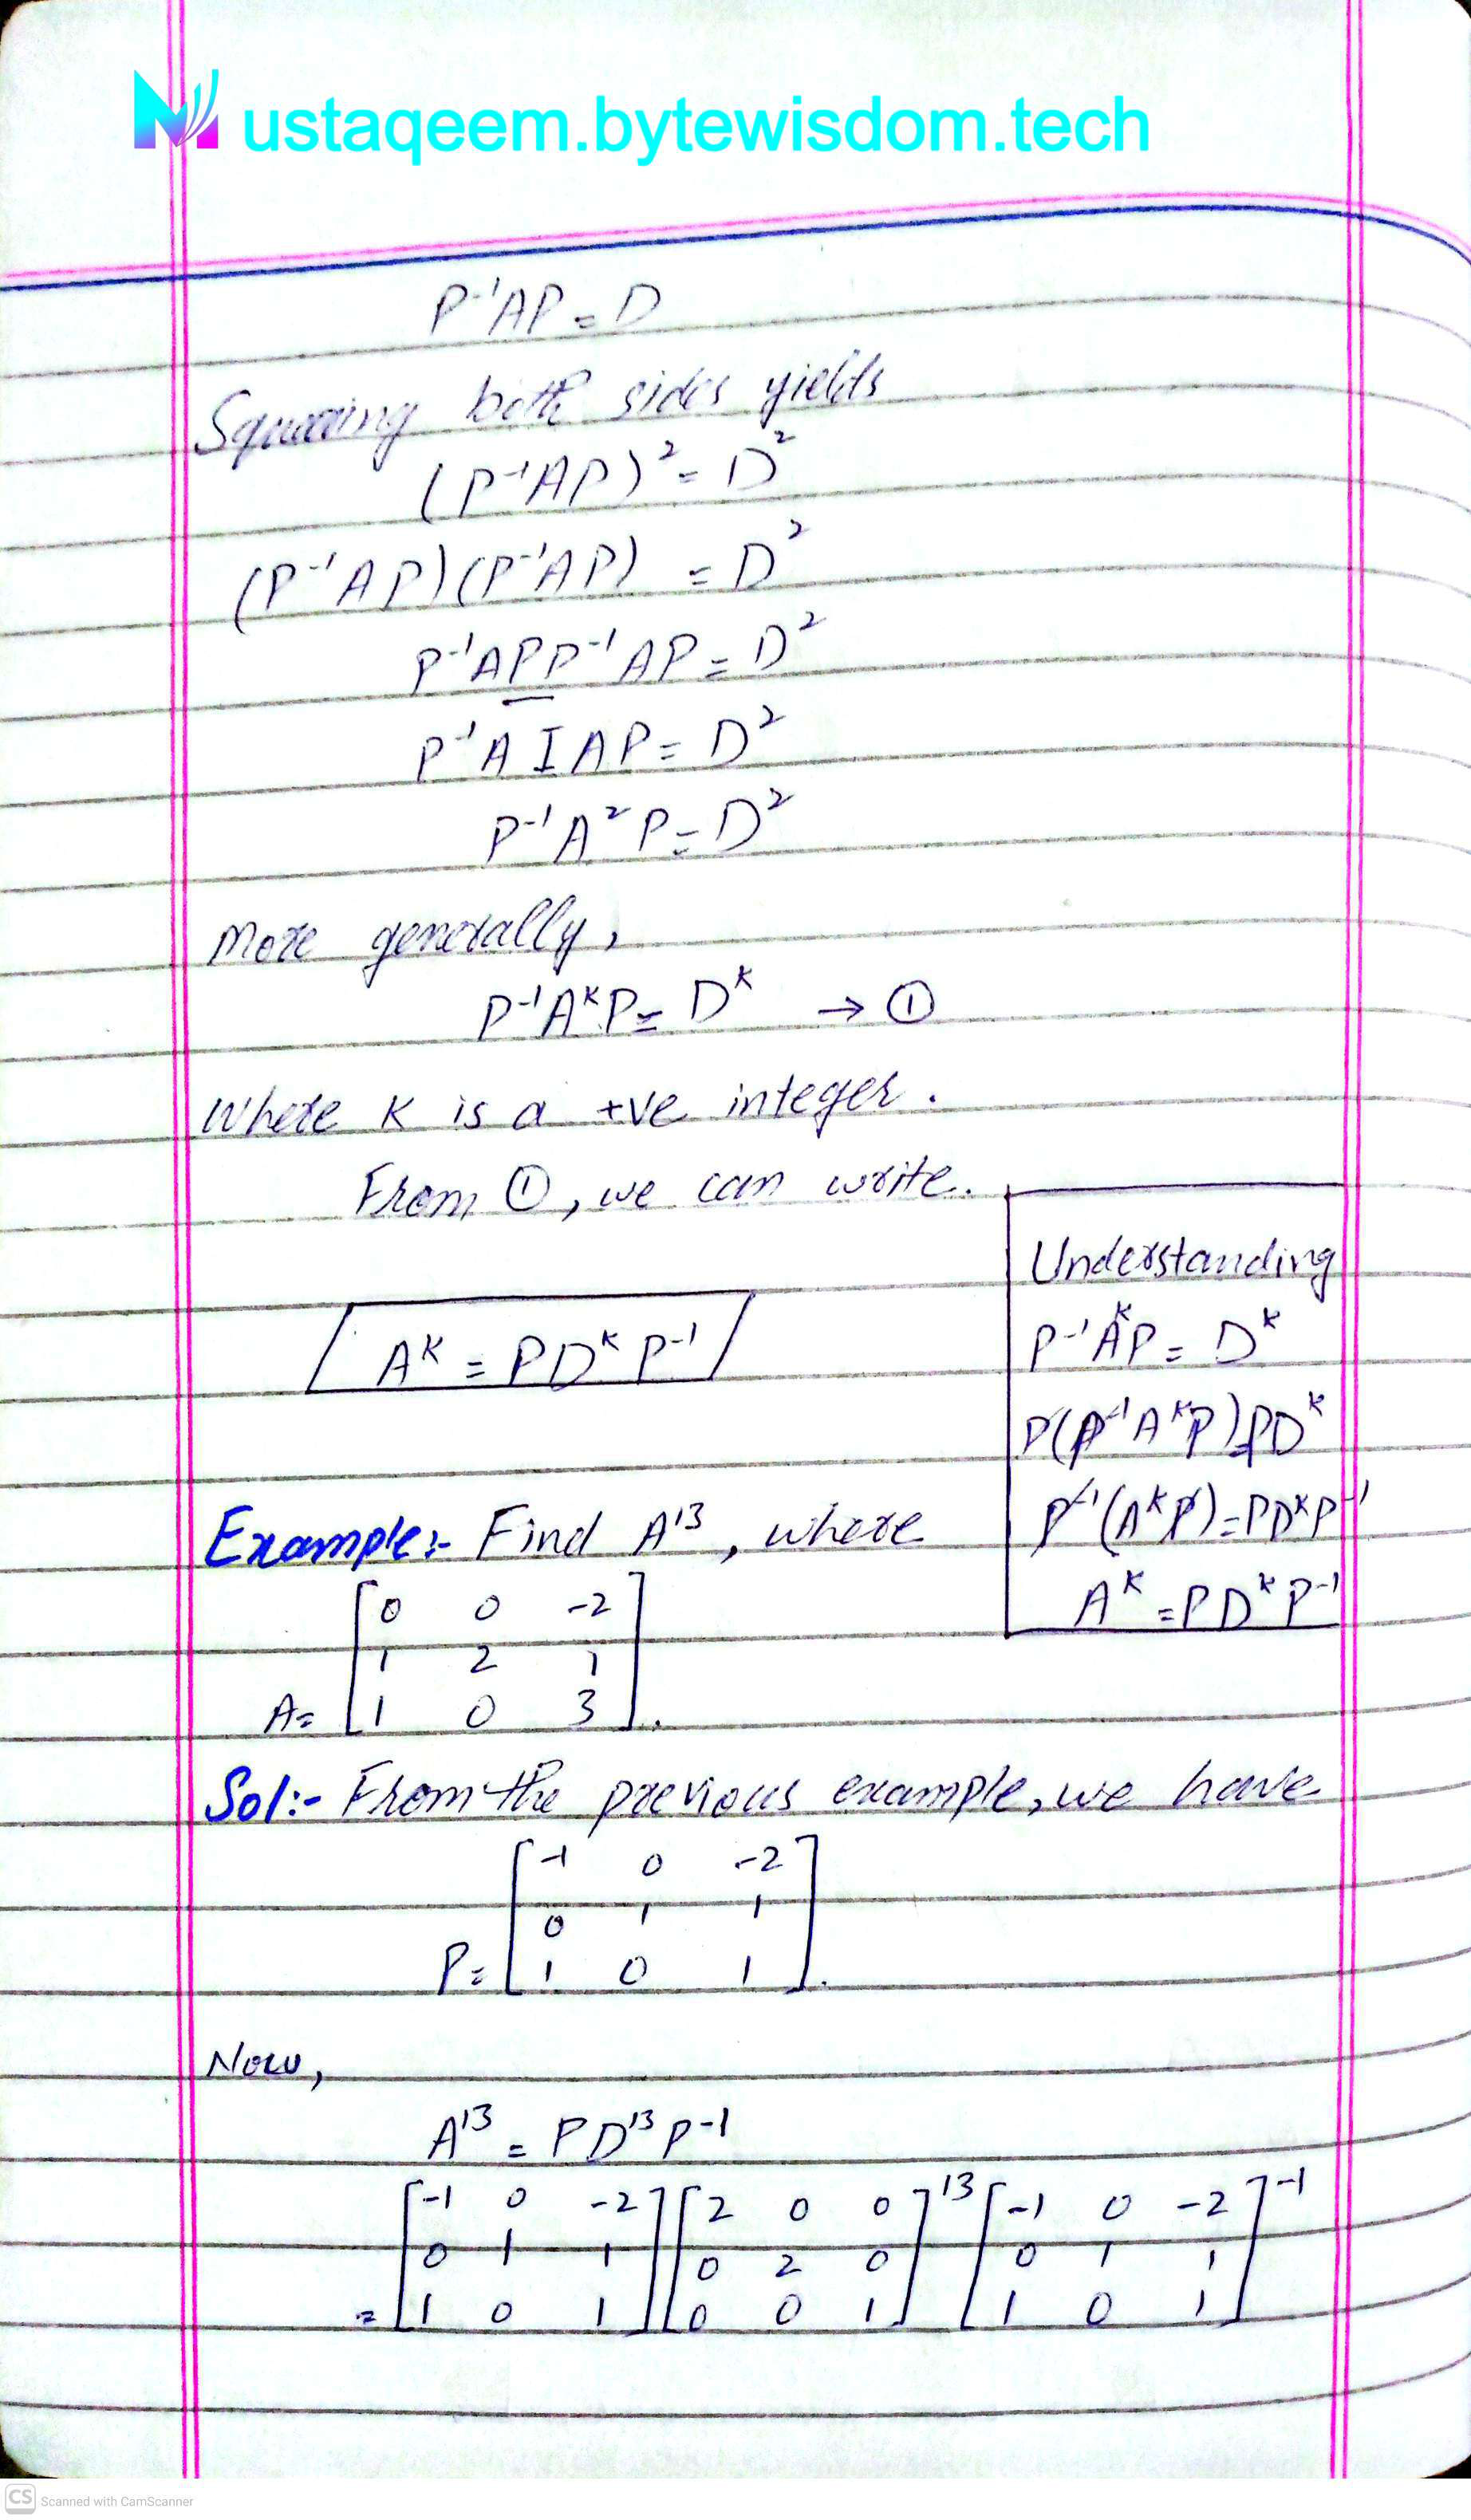 Mustaqeem.bytewisdom.tech
P⁻¹AP = D
Squaring both sides yields
(P⁻¹AP)² = D²
(P⁻¹AP)(P⁻¹AP) = D²
P⁻¹APP⁻¹AP = D²
P⁻¹AIAP = D²
P⁻¹A²P = D²
More generally,
P⁻¹AᵏP = Dᵏ → ①
Where K is a +ve integer.
From ①, we can write.
Aᵏ = PDᵏP⁻¹
Understanding
P⁻¹AᵏP = Dᵏ
P(P⁻¹AᵏP) = PDᵏ
P⁻¹(AᵏP) = PDᵏP⁻¹
Aᵏ = PDᵏP⁻¹
Example:- Find A¹³, where
[0 0 -2]
[1 2 1]
A= [1 0 3].
Sol:- From the previous example, we have
[-1 0 -2]
[0 1 1]
P= [1 0 1].
Now,
A¹³ = PD¹³P⁻¹
[-1 0 -2] [2 0 0]¹³ [-1 0 -2]⁻¹
[0 1 1] [0 2 0] [0 1 1]
= [1 0 1] [0 0 1] [1 0 1]
CS Scanned with CamScanner